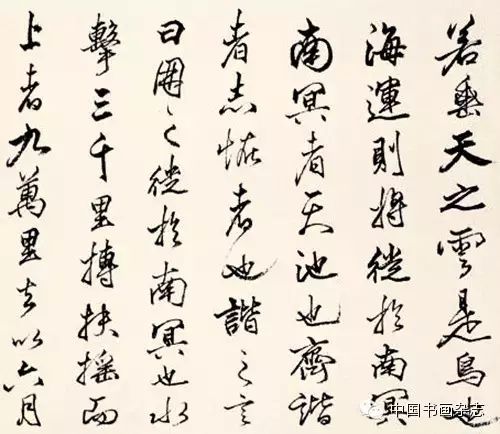 若垂天之雲是鳥也
海運則將徙於南冥
南冥者天池也齊諧
者志恠者也諧之言
曰鵬之徙於南冥也水
擊三千里摶扶搖而
上者九萬里去以六月
中国书画杂志